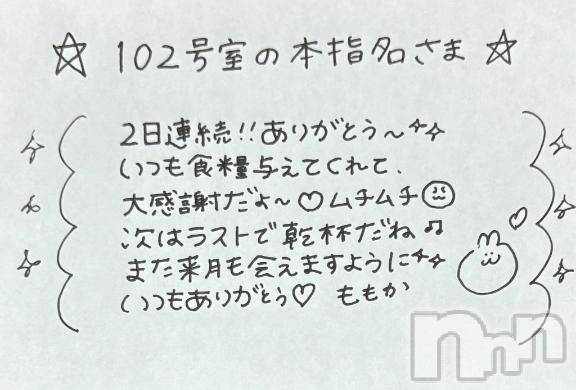 ☆ 102号室の本指名さま ☆
2日連続!!ありがとう〜✨
いつも食糧与えてくれて、
大感謝だよ〜♡ムチムチ
次はラストで乾杯だね♫
また来月も会えますように✨
いつもありがとう♡ ももか
nnn